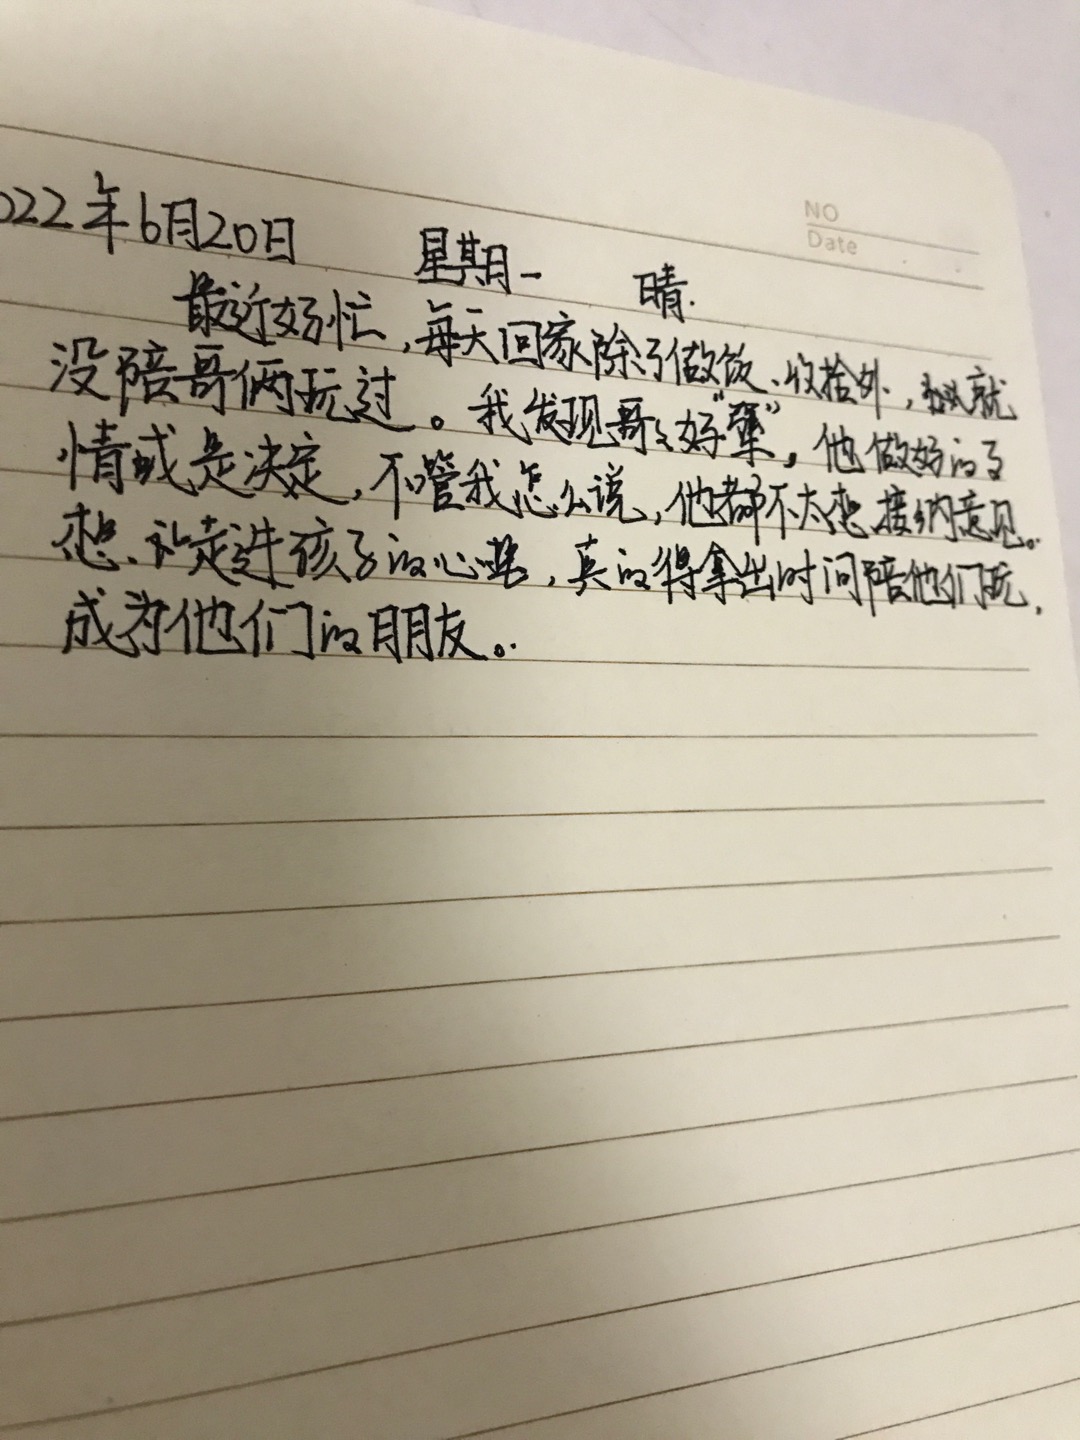 NO
Date
022年6月20日 星期一 晴.
最近好忙,每天回家除了做饭、收拾外,就
没陪哥俩玩过。我发现哥哥好"犟",他做好的事
情或是决定,不管我怎么说,他都不太想接纳意见。
想、让走进孩子的心里,真的得拿出时间陪他们玩,
成为他们的朋友。